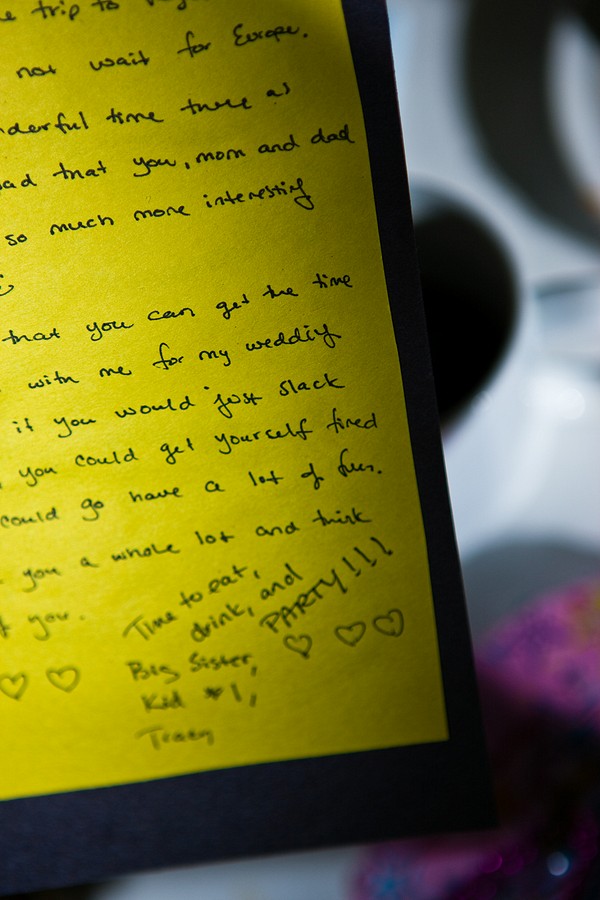 trip to
not wait for Europe.
nderful time there as
ad that you, mom and dad
so much more interesting
that you can get the time
with me for my wedding
if you would just slack
you could get yourself fired
could go have a lot of fun.
you a whole lot and think
f you.
Time to eat,
drink, and
PARTY!!!
♡ ♡ ♡
♡ ♡
Big Sister,
Kid #1,
Tracy